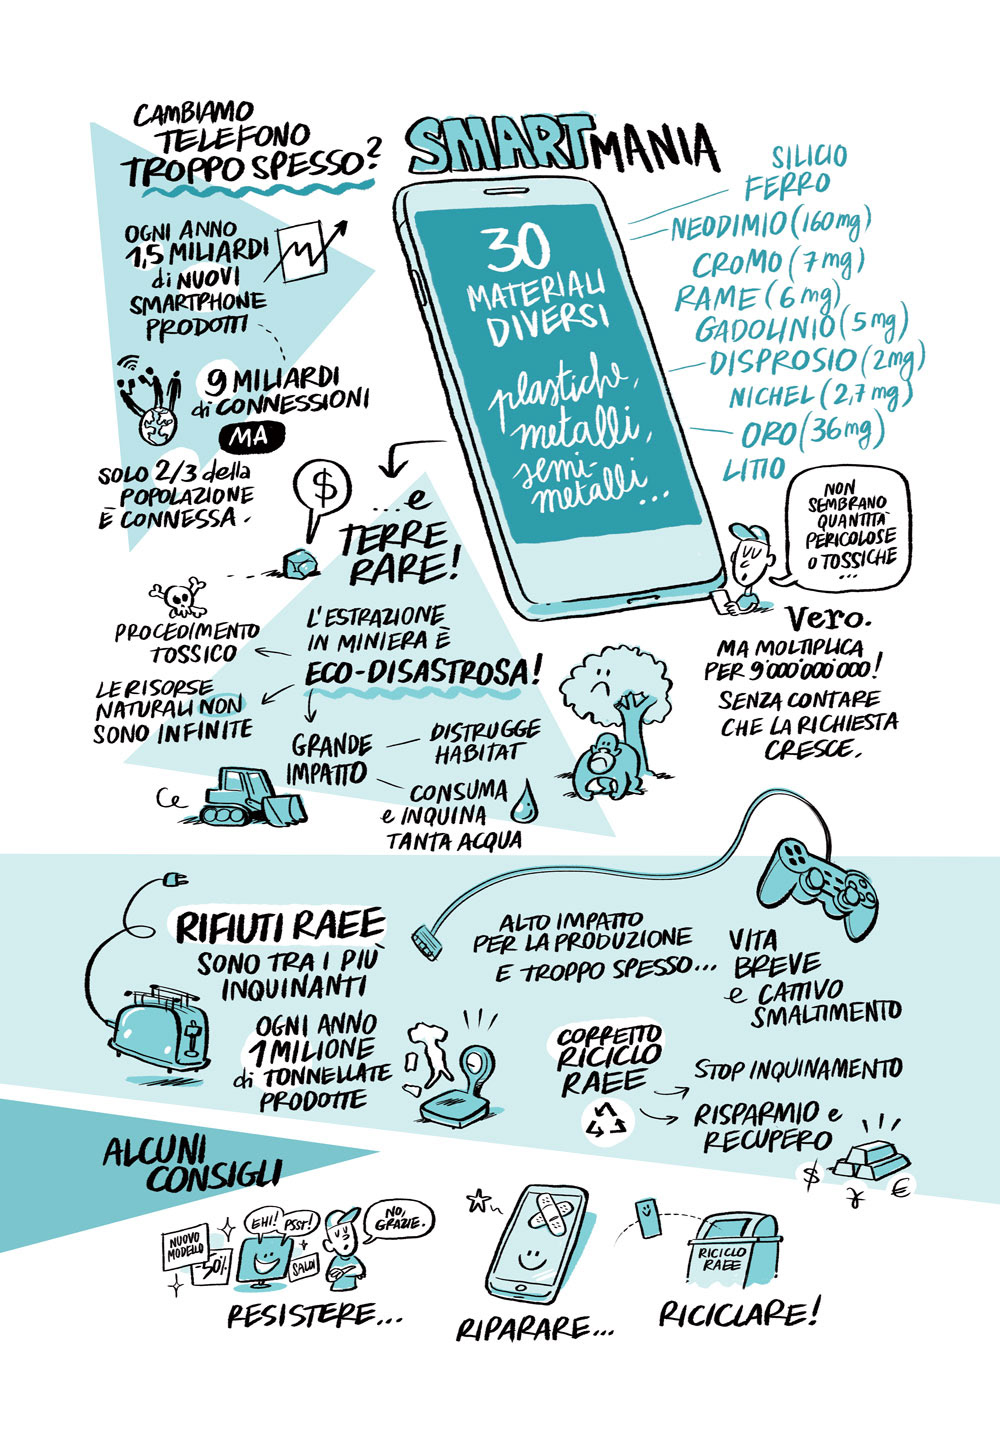 CAMBIAMO
TELEFONO
TROPPO SPESSO?
SMARTMANIA
OGNI ANNO
1,5 MILIARDI
di NUOVI
SMARTPHONE
PRODOTTI
9 MILIARDI
di CONNESSIONI
MA
SOLO 2/3 della
POPOLAZIONE
È CONNESSA.
30
MATERIALI
DIVERSI
plastiche,
metalli,
semi-
metalli...
SILICIO
FERRO
NEODIMIO (160 mg)
CROMO (7 mg)
RAME (6 mg)
GADOLINIO (5 mg)
DISPROSIO (2 mg)
NICHEL (2,7 mg)
ORO (36 mg)
LITIO
NON
SEMBRANO
QUANTITÀ
PERICOLOSE
O TOSSICHE
...
Vero.
MA MOLTIPLICA
PER 9'000'000'000!
SENZA CONTARE
CHE LA RICHIESTA
CRESCE.
$
...e
TERRE
RARE!
L'ESTRAZIONE
IN MINIERA È
ECO-DISASTROSA!
PROCEDIMENTO
TOSSICO
LE RISORSE
NATURALI NON
SONO INFINITE
GRANDE
IMPATTO
DISTRUGGE
HABITAT
CONSUMA
e INQUINA
TANTA ACQUA
RIFIUTI RAEE
SONO TRA I PIÙ
INQUINANTI
OGNI ANNO
1 MILIONE
di TONNELLATE
PRODOTTE
ALTO IMPATTO
PER LA PRODUZIONE
E TROPPO SPESSO...
VITA
BREVE
e CATTIVO
SMALTIMENTO
CORRETTO
RICICLO
RAEE
STOP INQUINAMENTO
RISPARMIO e
RECUPERO
$ ¥ €
ALCUNI
CONSIGLI
NUOVO
MODELLO
-50%
EHI!
PSST!
SALDI
NO,
GRAZIE.
RESISTERE...
RIPARARE...
RICICLO
RAEE
RICICLARE!